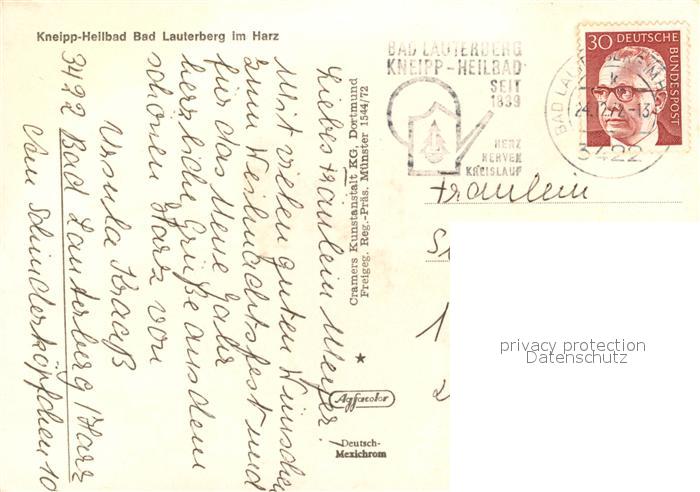 Kneipp-Heilbad Bad Lauterberg im Harz
Liebes Fräulein Meyer!
Mit vielen guten Wünschen
zum Weihnachtsfest und
für das Neue Jahr
herzliche Grüße aus dem
schönen Harz von
Ursula Kraaß
3422 Bad Lauterberg/Harz
Am Schinderköpfchen 10
Cramers Kunstanstalt KG. Dortmund
Freigeg. Reg.-Präs. Münster 1544/72
Agfacolor
Deutsch-
Mexichrom
BAD LAUTERBERG
KNEIPP-HEILBAD
SEIT
1839
HERZ
NERVEN
KREISLAUF
BAD LAUTERBERG IM HARZ
24.12.72-13
3422
30 DEUTSCHE
BUNDESPOST
Fräulein
1
2
privacy protection
Datenschutz